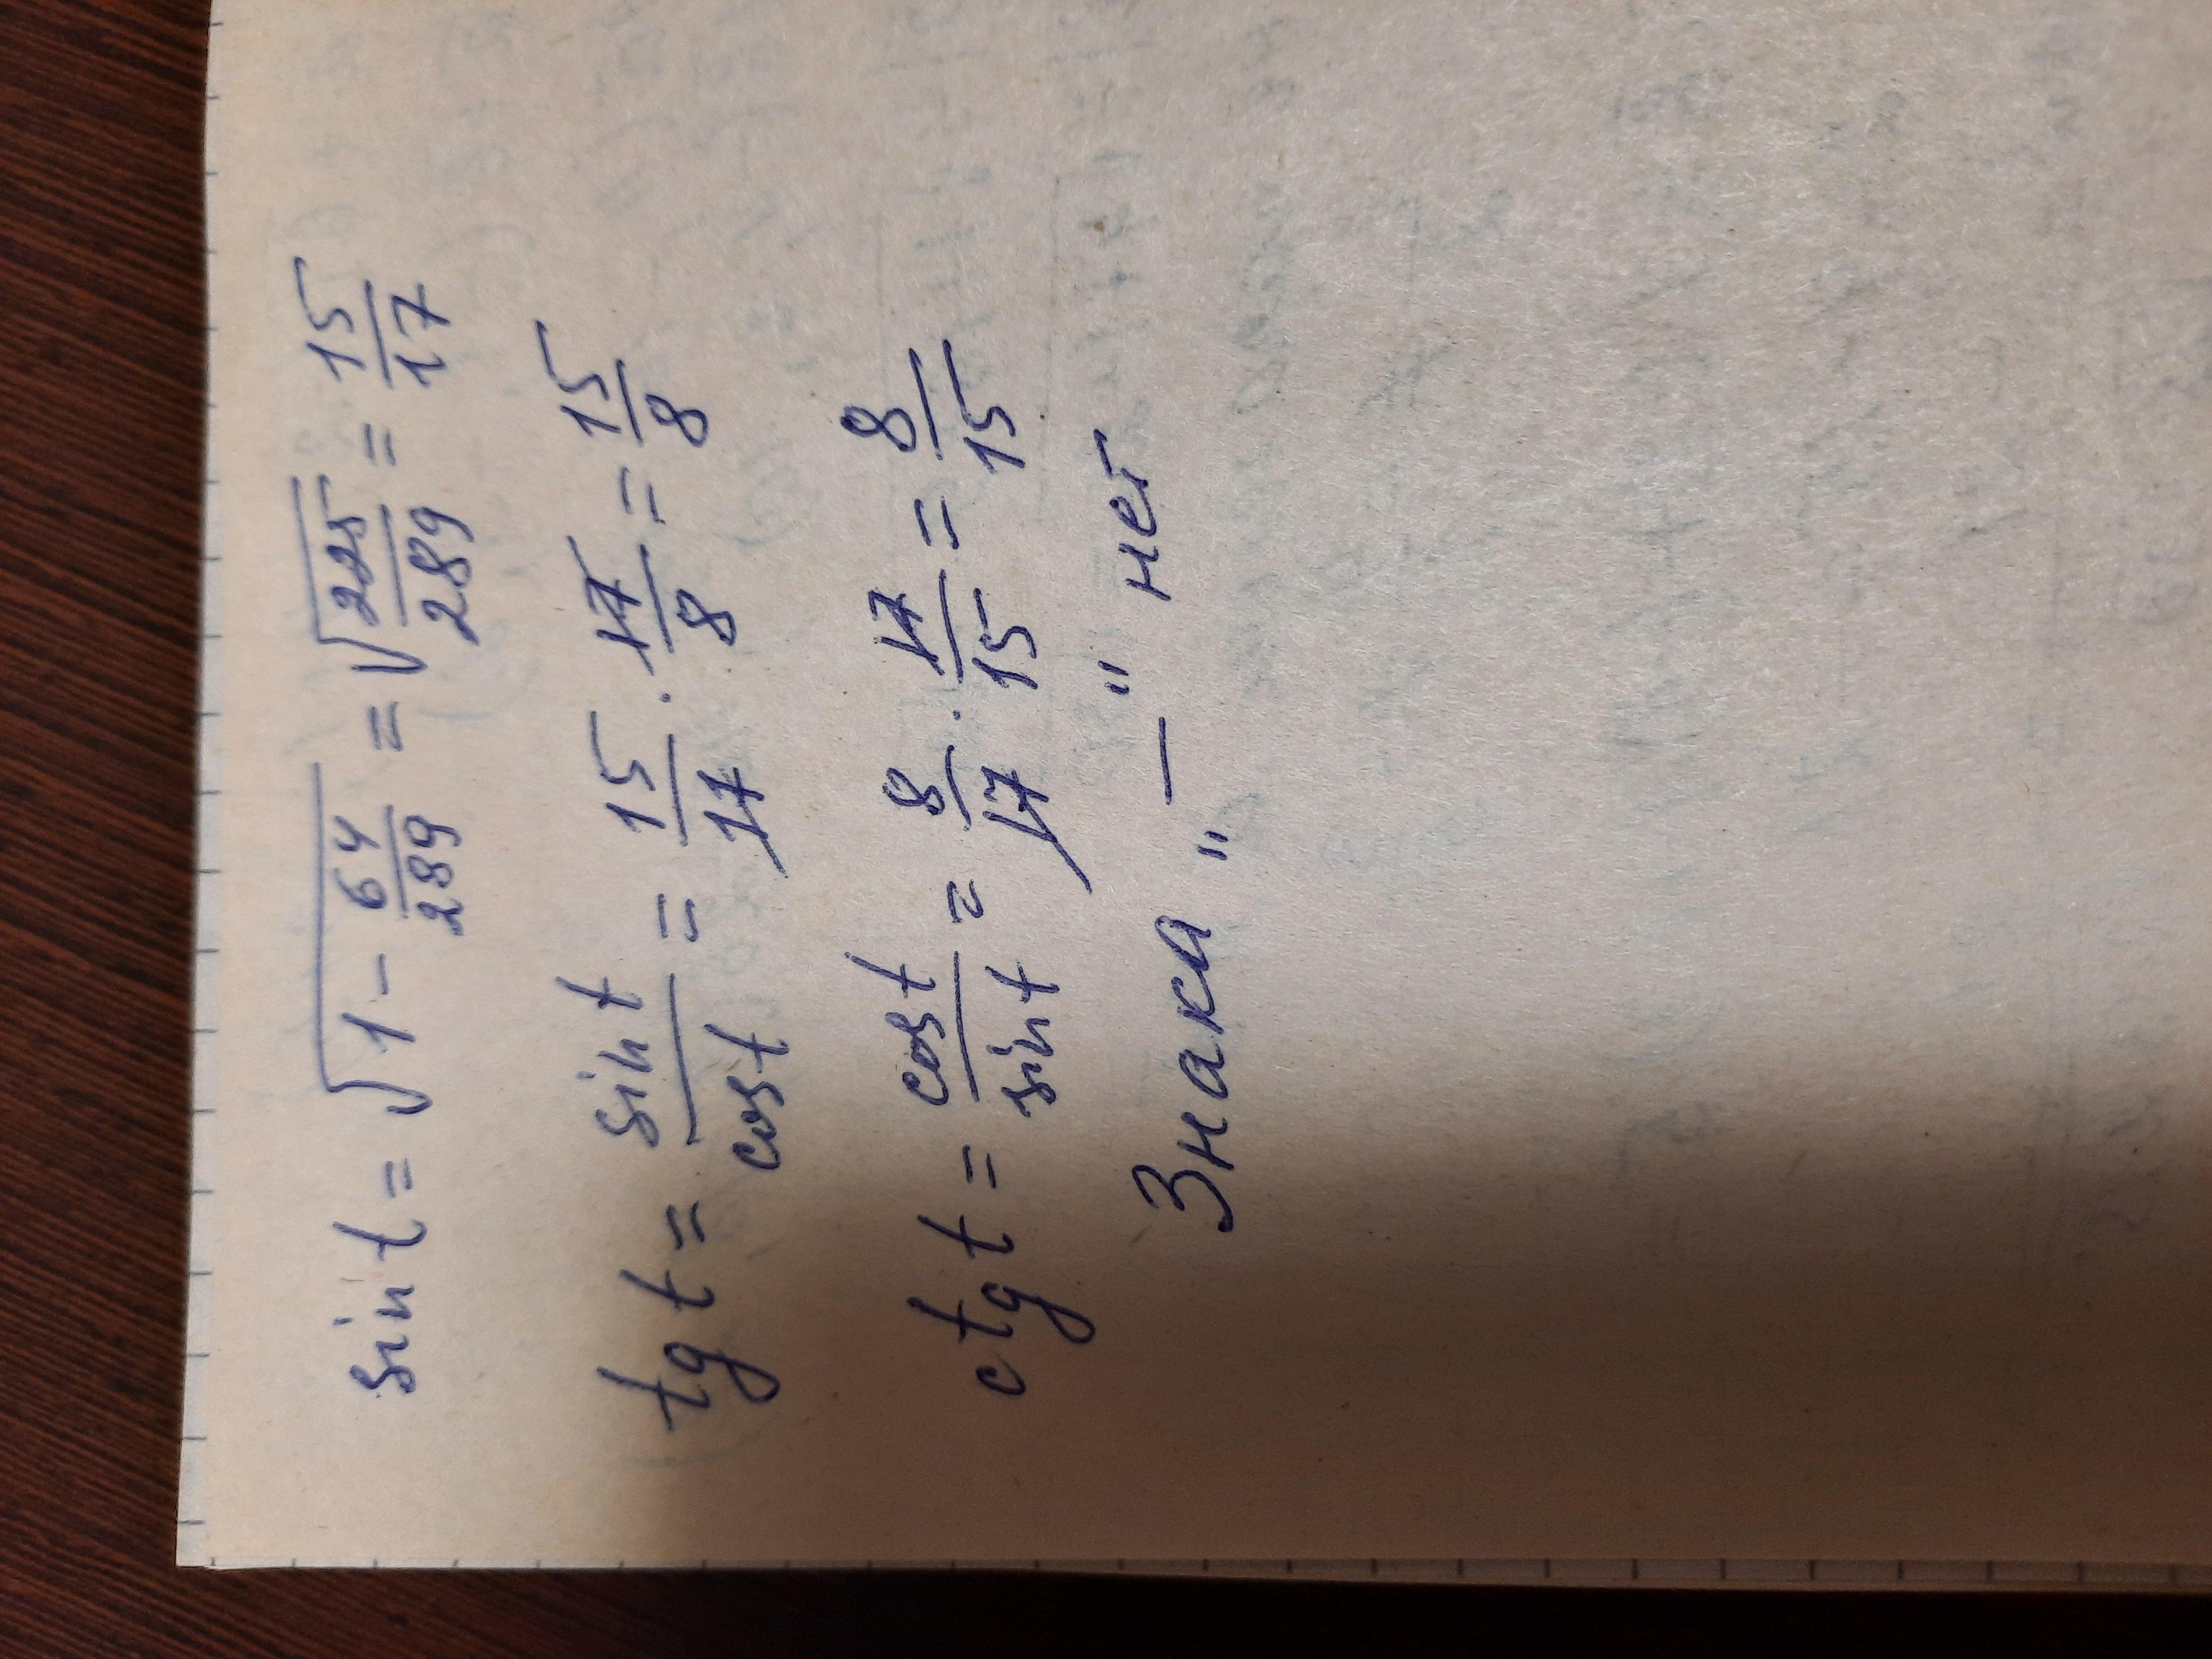 sin t = √(1 - 64/289) = √(225/289) = 15/17
tg t = sin t/cos t = 15/17 · 17/8 = 15/8
ctg t = cos t/sin t = 8/17 · 17/15 = 8/15
Знака "—" нет